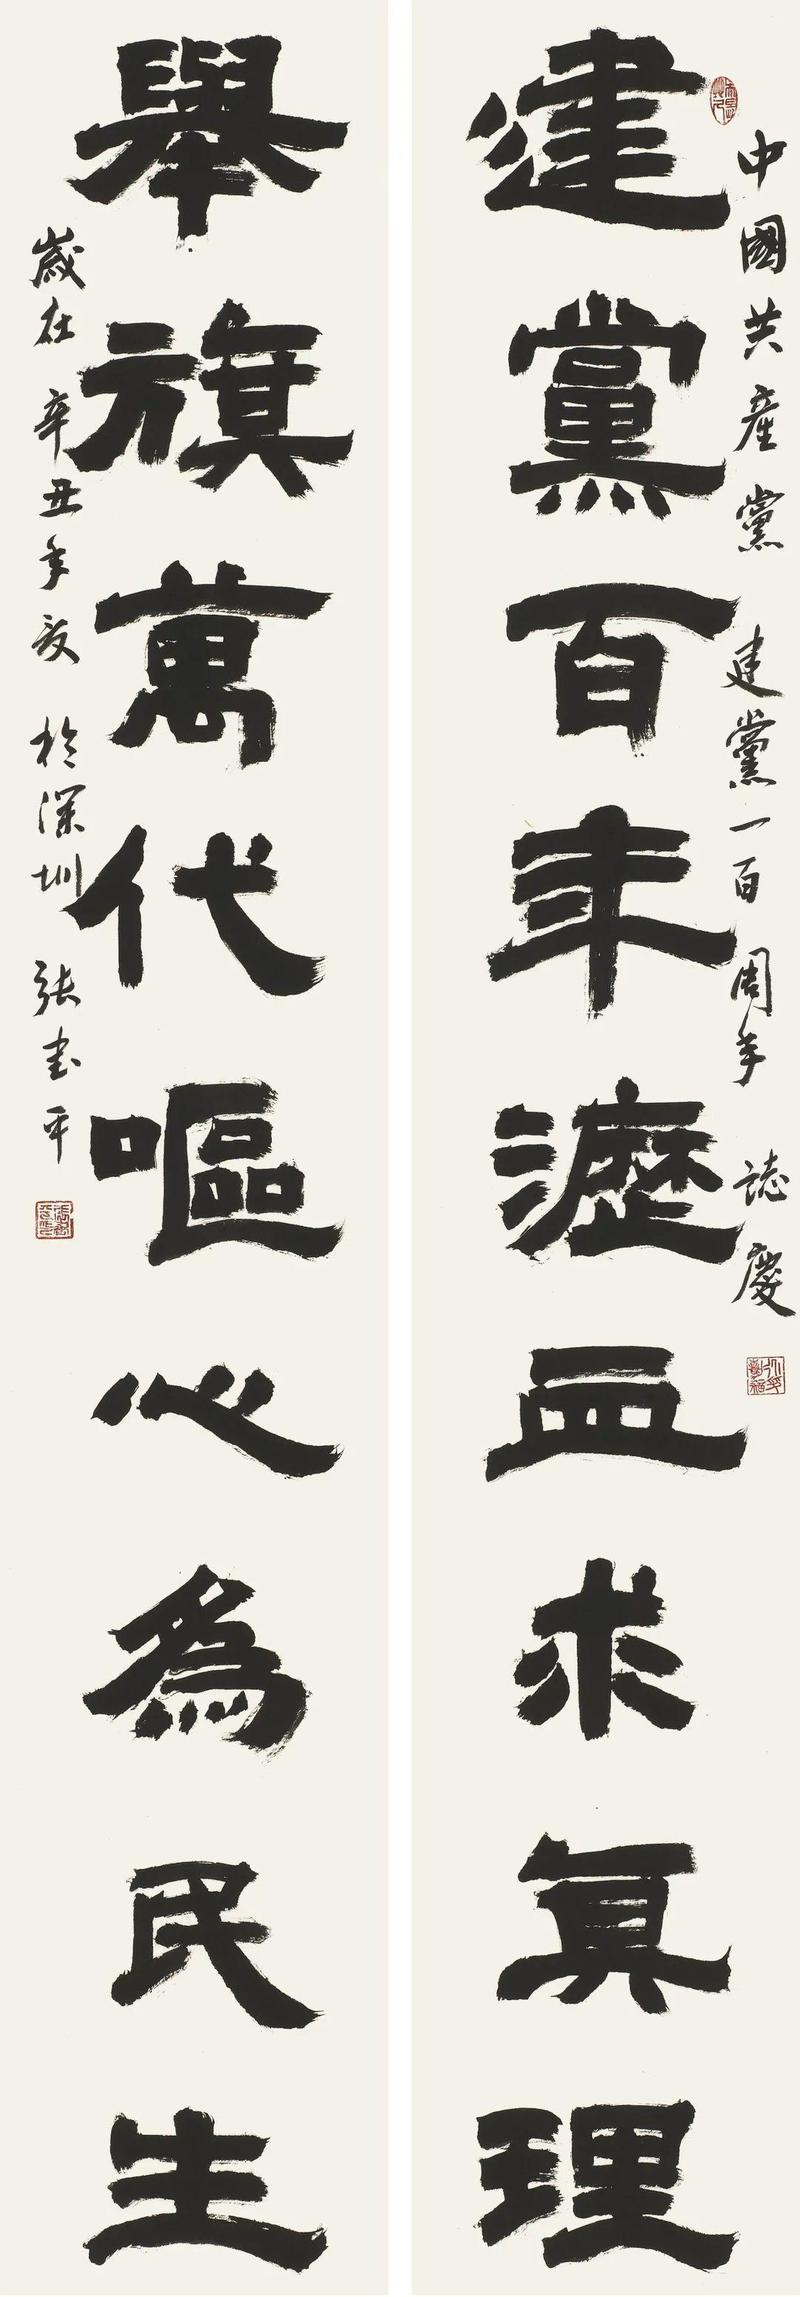 中國共產黨建黨一百周年誌慶
建黨百年瀝血求真理
舉旗萬代嘔心為民生
歲在辛丑年夏於深圳張書平